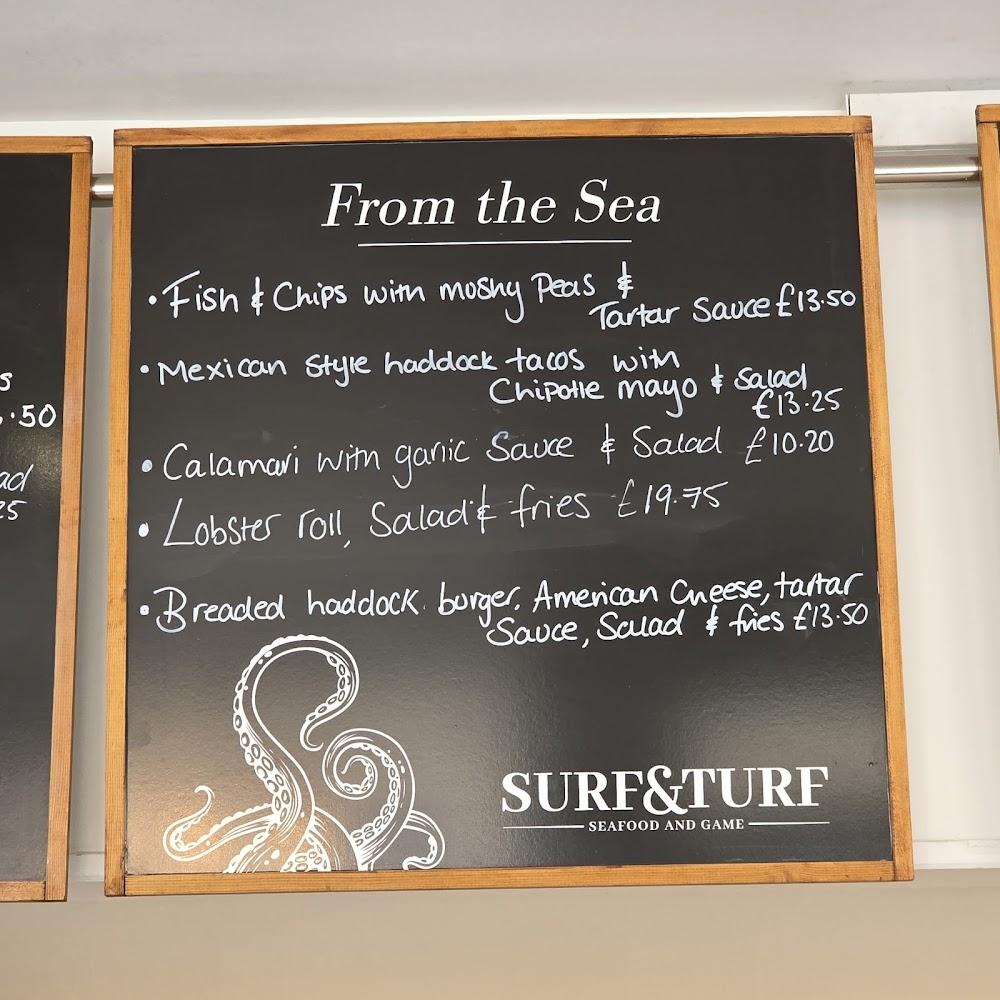 From the Sea
• Fish & Chips with moshy Peas &
Tartar Sauce £13.50
• Mexican Style haddock tacos with
Chipotle mayo & Salad
£13.25
• Calamari with garlic Sauce & Salad £10.20
• Lobster roll, Salad & fries £19.75
• Breaded haddock burger, American Cheese, tartar
Sauce, Salad & fries £13.50
SURF&TURF
SEAFOOD AND GAME
s
.50
ad
25